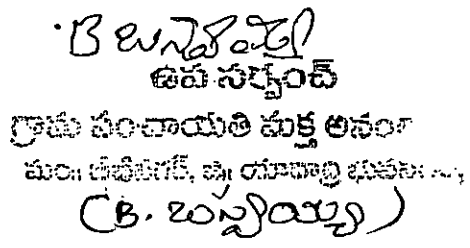 B బుస్వయ్య
ఉప సర్పంచ్
గ్రామ పంచాయతి మక్త అనం
మం॥ బీబీనగర్, జి॥ యాదాద్రి భువన
(B. బుస్వయ్య)